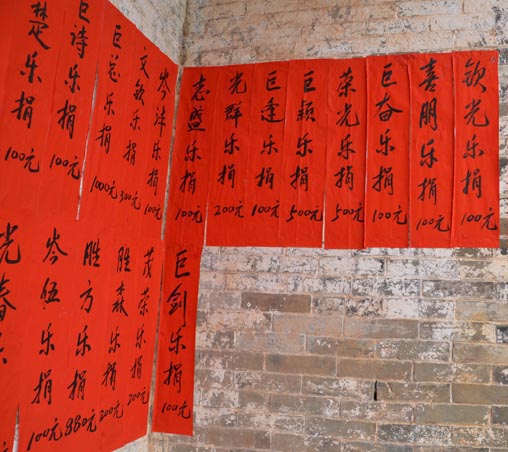 楚乐捐100元
巨诗乐捐100元
巨总乐捐1000元
文钦乐捐300元
岑沣乐捐100元
志盛乐捐100元
光群乐捐200元
巨逢乐捐100元
巨颖乐捐500元
荣光乐捐500元
巨奋乐捐100元
喜朋乐捐100元
钦光乐捐100元
光春乐
岑伍乐捐100元
胜方乐捐880元
胜森乐捐200元
茂荣乐捐200元
巨剑乐捐100元